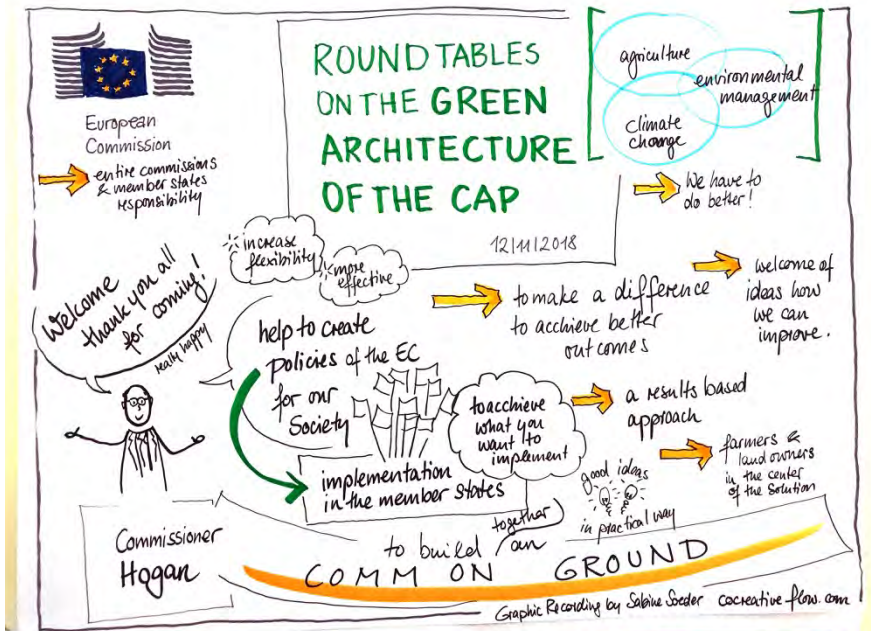 European
Commission
entire commissions
& member states
responsibility
ROUND TABLES
ON THE GREEN
ARCHITECTURE
OF THE CAP
12/11/2018
agriculture
environmental
management
climate
change
We have to
do better!
Welcome
thank you all
for coming!
really happy
increase
flexibility
more
effective
help to create
policies of the EC
for our
Society
implementation
in the member states
to acchieve
what you
want to
implement
to make a difference
to acchieve better
outcomes
welcome of
ideas how
we can
improve.
a results based
approach
farmers &
land owners
in the center
of the solution
good ideas
in practical way
Commissioner
Hogan
together
to build an
COMMON GROUND
Graphic Recording by Sabine Soeder cocreative-flow.com